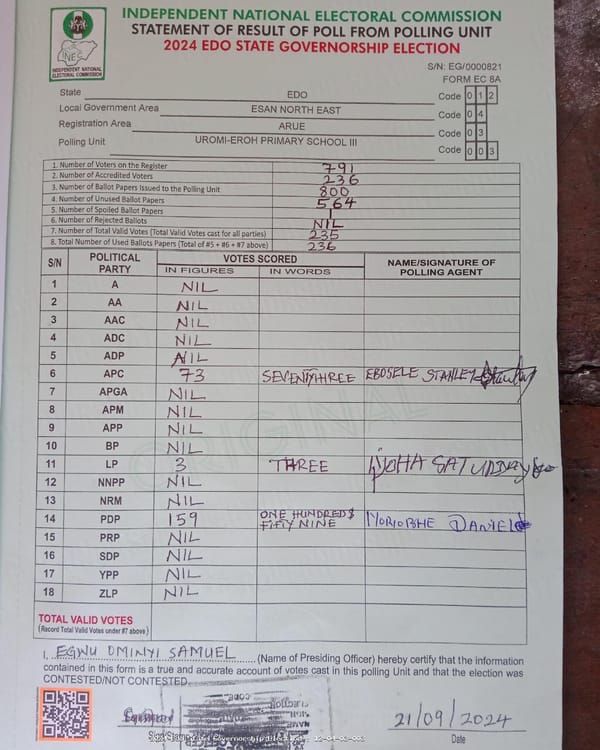 INDEPENDENT NATIONAL ELECTORAL COMMISSION
STATEMENT OF RESULT OF POLL FROM POLLING UNIT
2024 EDO STATE GOVERNORSHIP ELECTION
INEC
INDEPENDENT NATIONAL
ELECTORAL COMMISSION
S/N: EG/0000821
FORM EC 8A
State EDO Code 0 1 2
Local Government Area ESAN NORTH EAST Code 0 4
Registration Area ARUE Code 0 3
Polling Unit UROMI-EROH PRIMARY SCHOOL III Code 0 0 3
1. Number of Voters on the Register 791
2. Number of Accredited Voters 236
3. Number of Ballot Papers Issued to the Polling Unit 800
4. Number of Unused Ballot Papers 564
5. Number of Spoiled Ballot Papers 1
6. Number of Rejected Ballots NIL
7. Number of Total Valid Votes (Total Valid Votes cast for all parties) 235
8. Total Number of Used Ballots Papers (Total of #5 + #6 + #7 above) 236
S/N POLITICAL PARTY VOTES SCORED NAME/SIGNATURE OF POLLING AGENT
IN FIGURES IN WORDS
1 A NIL
2 AA NIL
3 AAC NIL
4 ADC NIL
5 ADP NIL
6 APC 73 SEVENTYTHREE EBOSELE STANLEY
7 APGA NIL
8 APM NIL
9 APP NIL
10 BP NIL
11 LP 3 THREE SATURDAY
12 NNPP NIL
13 NRM NIL
14 PDP 159 ONE HUNDRED & FIFTY NINE DANIEL
15 PRP NIL
16 SDP NIL
17 YPP NIL
18 ZLP NIL
ORIGINAL
TOTAL VALID VOTES
(Record Total Valid Votes under #7 above)
I, EGWU OMINYI SAMUEL (Name of Presiding Officer) hereby certify that the information
contained in this form is a true and accurate account of votes cast in this polling Unit and that the election was
CONTESTED/NOT CONTESTED.
21/09/2024
Date